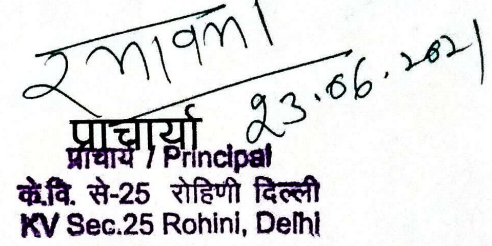 23.06.2021
प्राचार्या
प्राचार्य / Principal
के.वि. से-25 रोहिणी दिल्ली
KV Sec.25 Rohini, Delhi